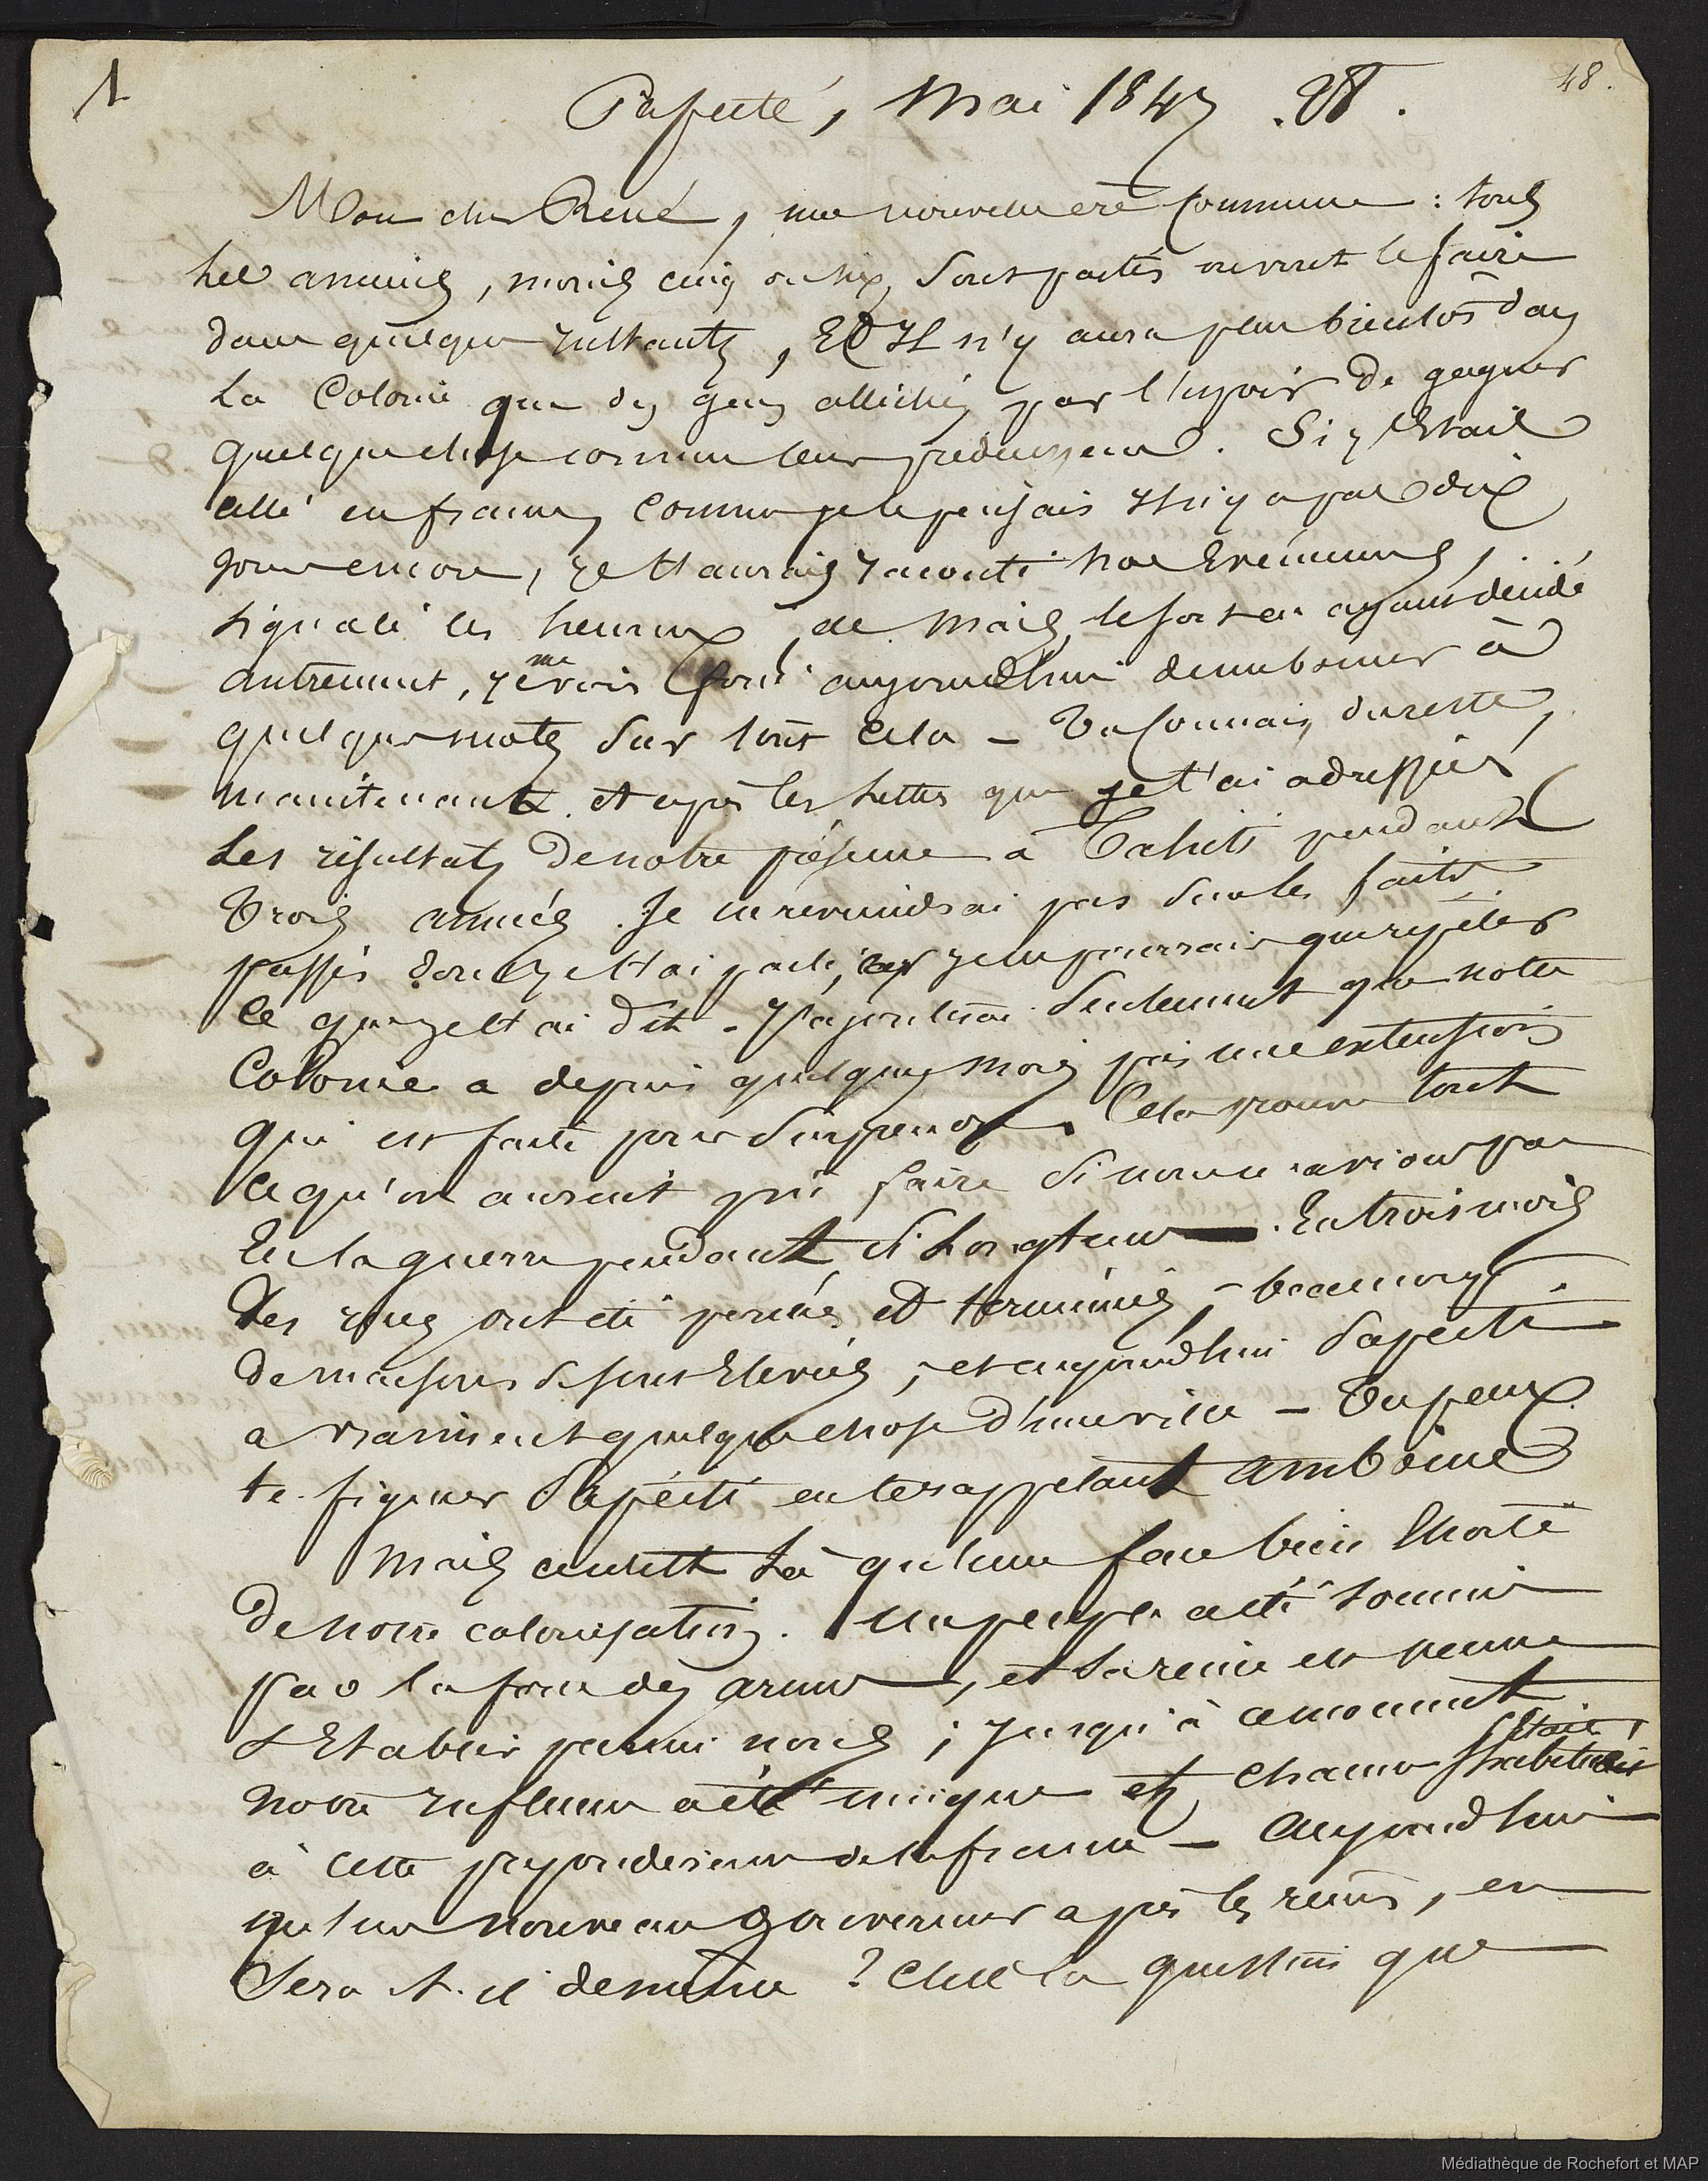 1
48.
Papeete, Mai 1847 .
Mon cher René, une nouvelle ère commence : tous
les anciens, moins cinq ou six, sont partis ou vont le faire
dans quelques instants, Et Il n'y aura plus bientôt dans
la Colonie que des gens alléchés par l'espoir de gagner
quelque chose comme leurs prédécesseurs. Si j'Etais
allé en france, comme je le pensais Il n'y a pas dix
jours encore, je t'aurais raconté nos Evénemens,
signalé les heureux ; mais, le sort en ayant décidé
autrement, je me vois forcé aujourdhui de me borner à
quelques mots sur tout cela - Tu Connais, du reste,
maintenant et après les lettres que je t'ai adressées
Les résultats de notre présence à Tahiti pendant
Trois années. Je ne reviendrai pas sur les faits
passés dont je t'ai parlé, car je ne pourrais que répéter
ce que je t'ai dit - J'ajouterai Seulement que notre
Colonie a depuis quelques mois pris une extension
qui est faite pour surprendre. Cela prouve tout
ce qu'on aurait pu faire si nous n'avions pas
Eu la guerre pendant si Longtems — En trois mois
des rues ont été percées et terminées, beaucoup
de maisons se sont Elevées, et aujourdhui Papeete
a vraiment quelque chose d'une ville - Tu peux
te figurer Papeete en te rappelant Amboine
Mais ce n'est Là qu'une face bien
de notre colonisation. Un peuple a été soumis
par la force des armes, et sa reine est venue
s'Etablir parmi nous ; jusqu'à ce moment
notre Influence a été unique et chacun s'était habitué
à cette prépondérance de la france - Aujourdhui
qu'un nouveau gouverneur a pris les rênes, en
Sera-t-il de même ? C'est la question que
Médiathèque de Rochefort et MAP